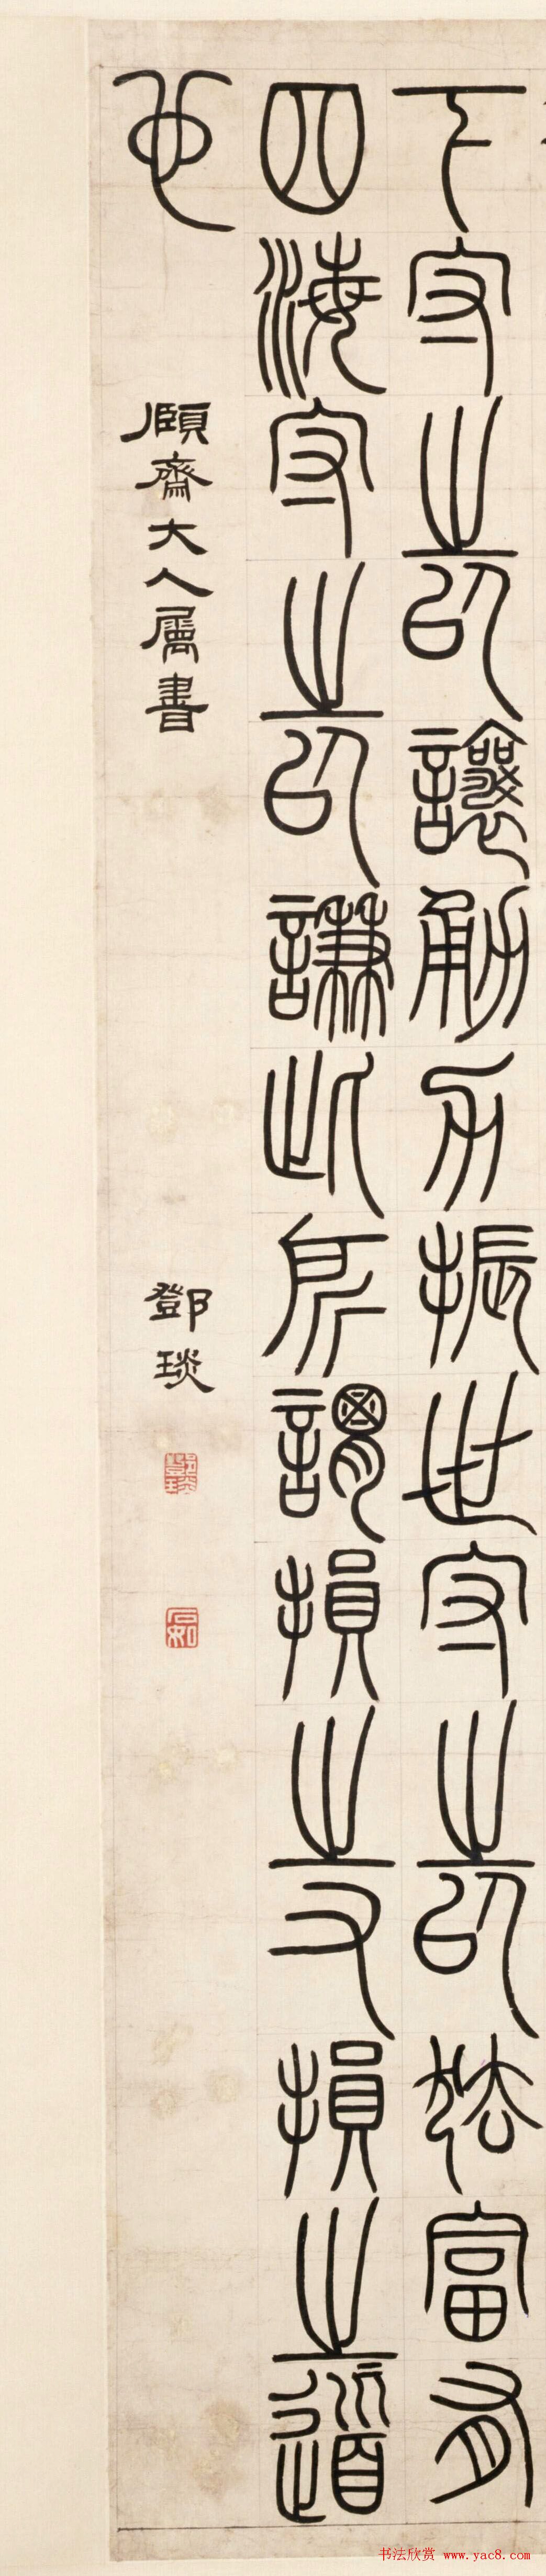 下守之以讓勇力振世守之以怯富有
四海守之以謙此所謂損之又損之道
也
頤齋大人屬書
鄧琰
鄧琰
石如
书法欣赏 www.yac8.com